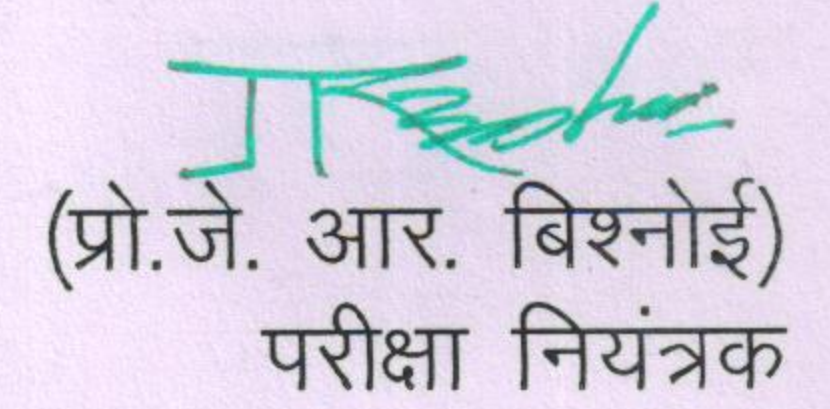 (प्रो.जे. आर. बिश्नोई)
परीक्षा नियंत्रक